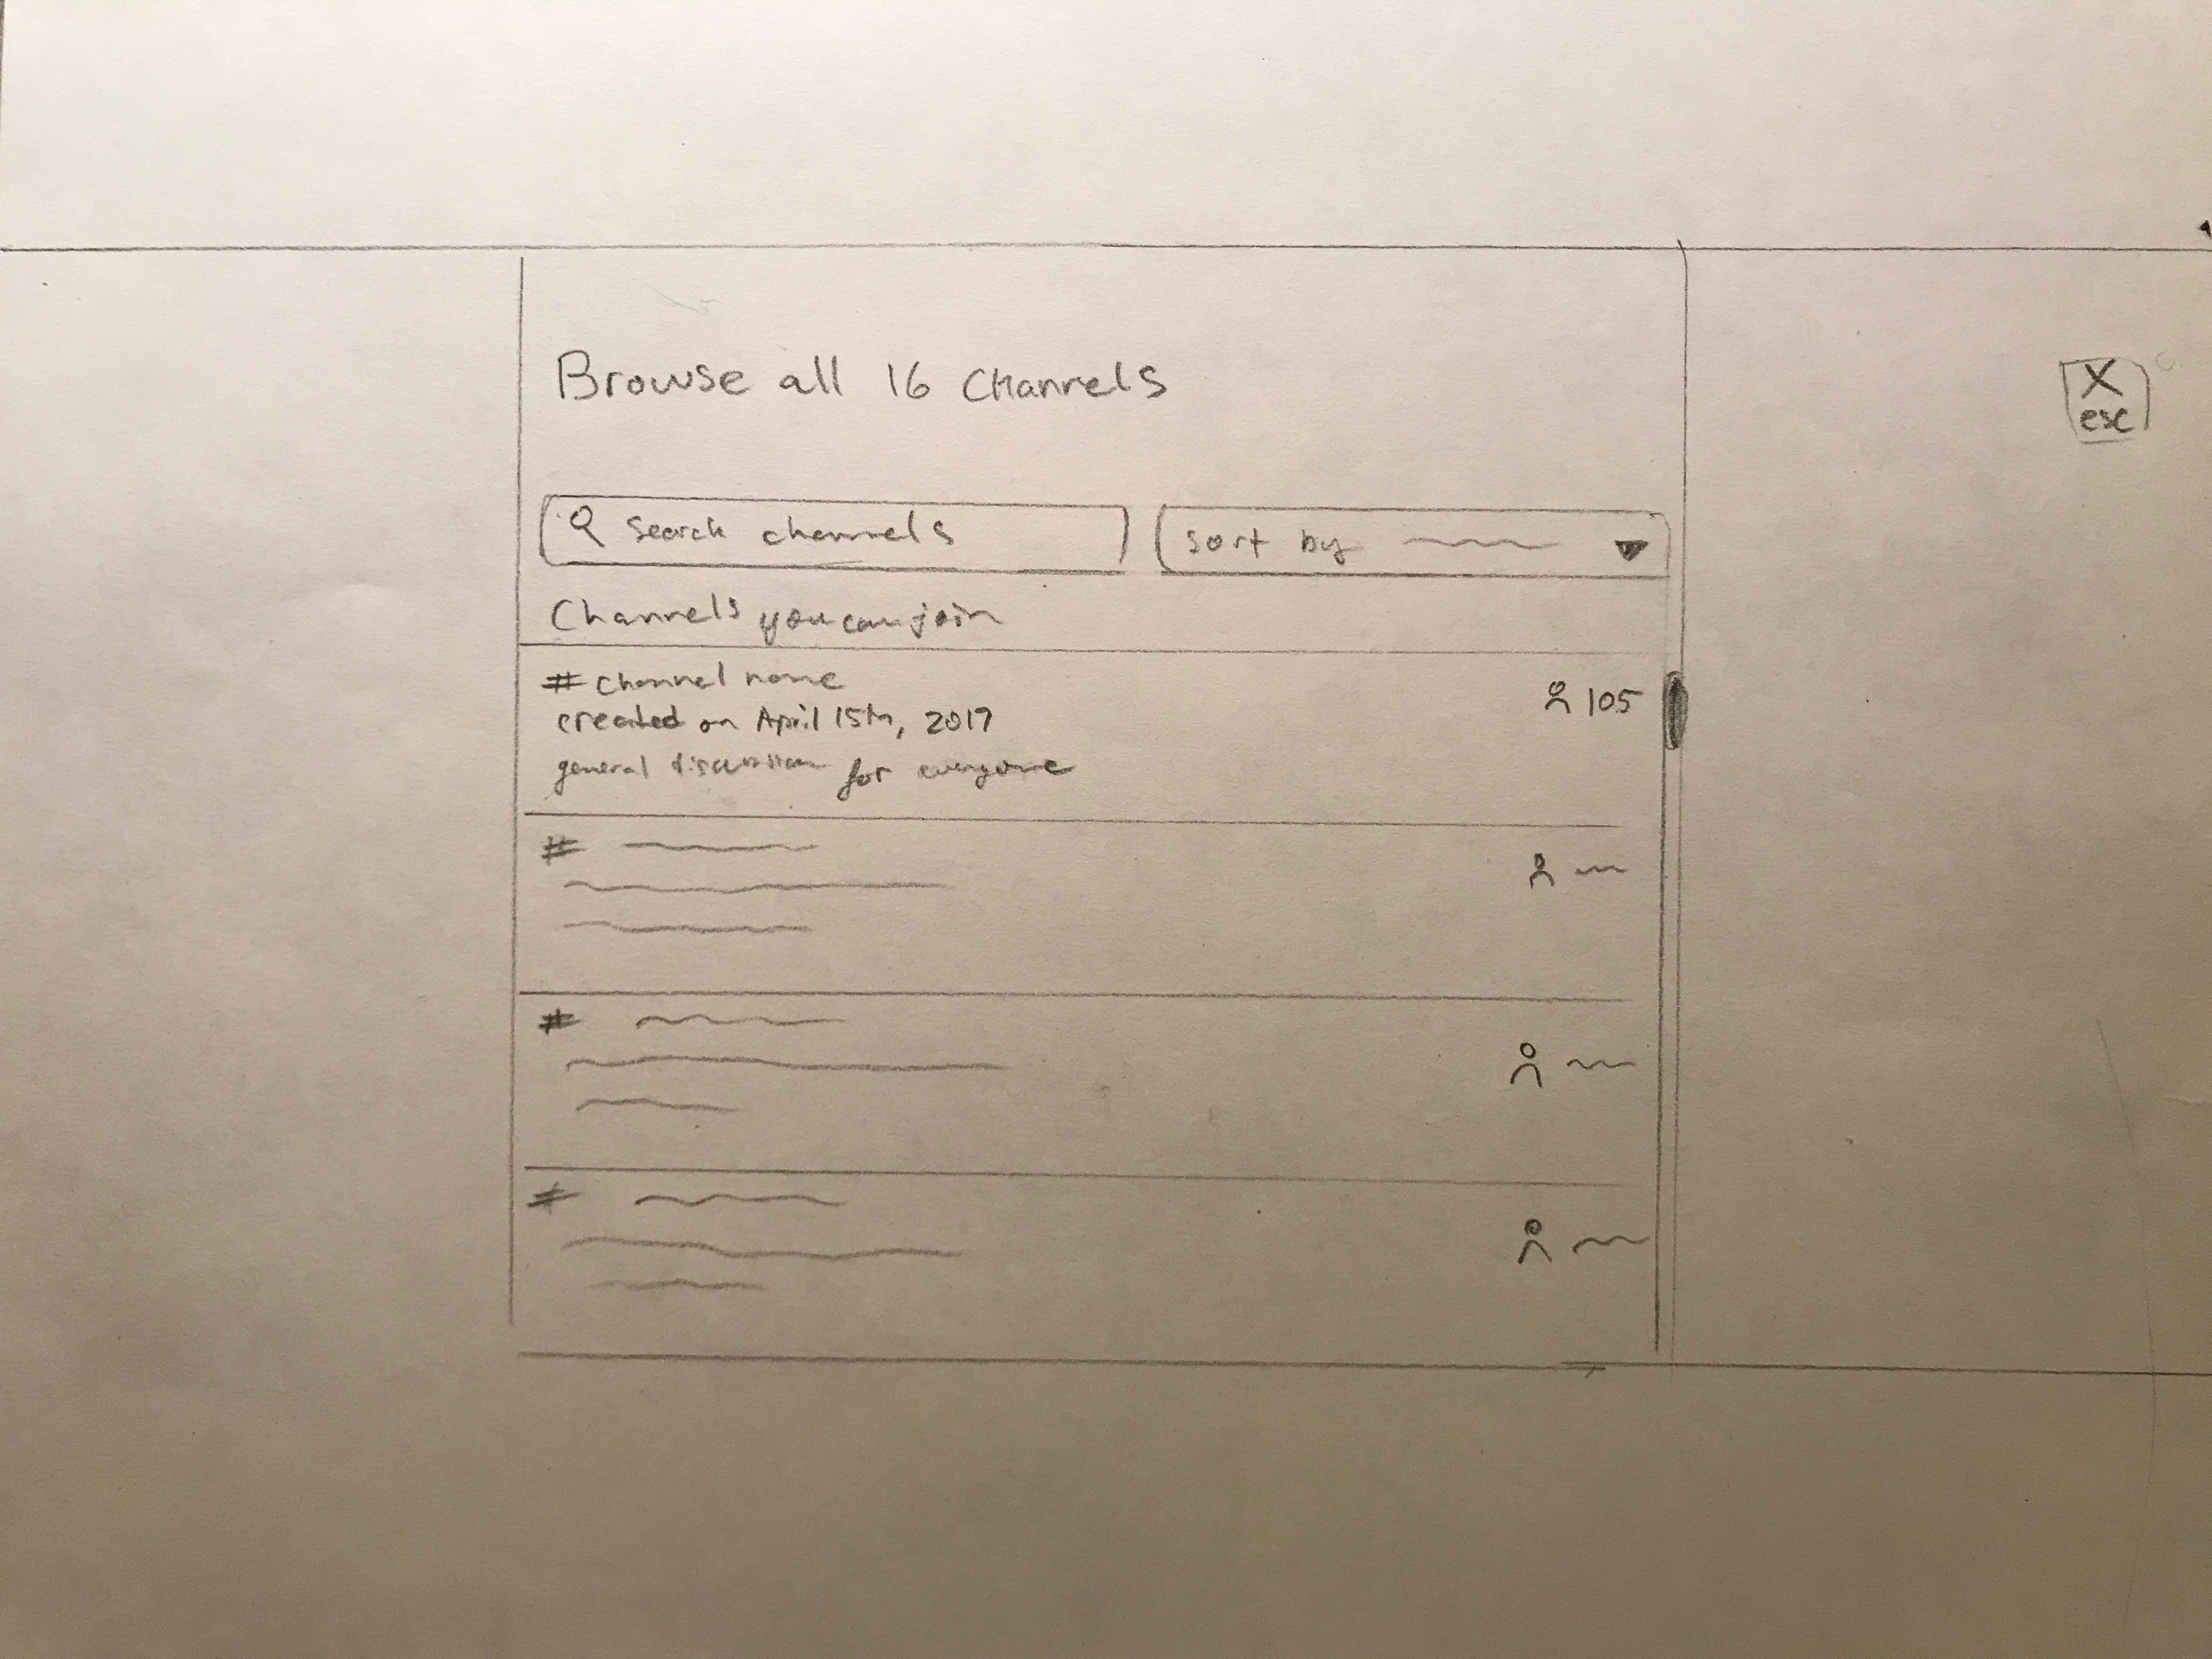 Browse all 16 Channels
X
esc
Search channels
sort by
Channels you can join
# channel name
created on April 15th, 2017
105
general discussion for everyone
#
#
#